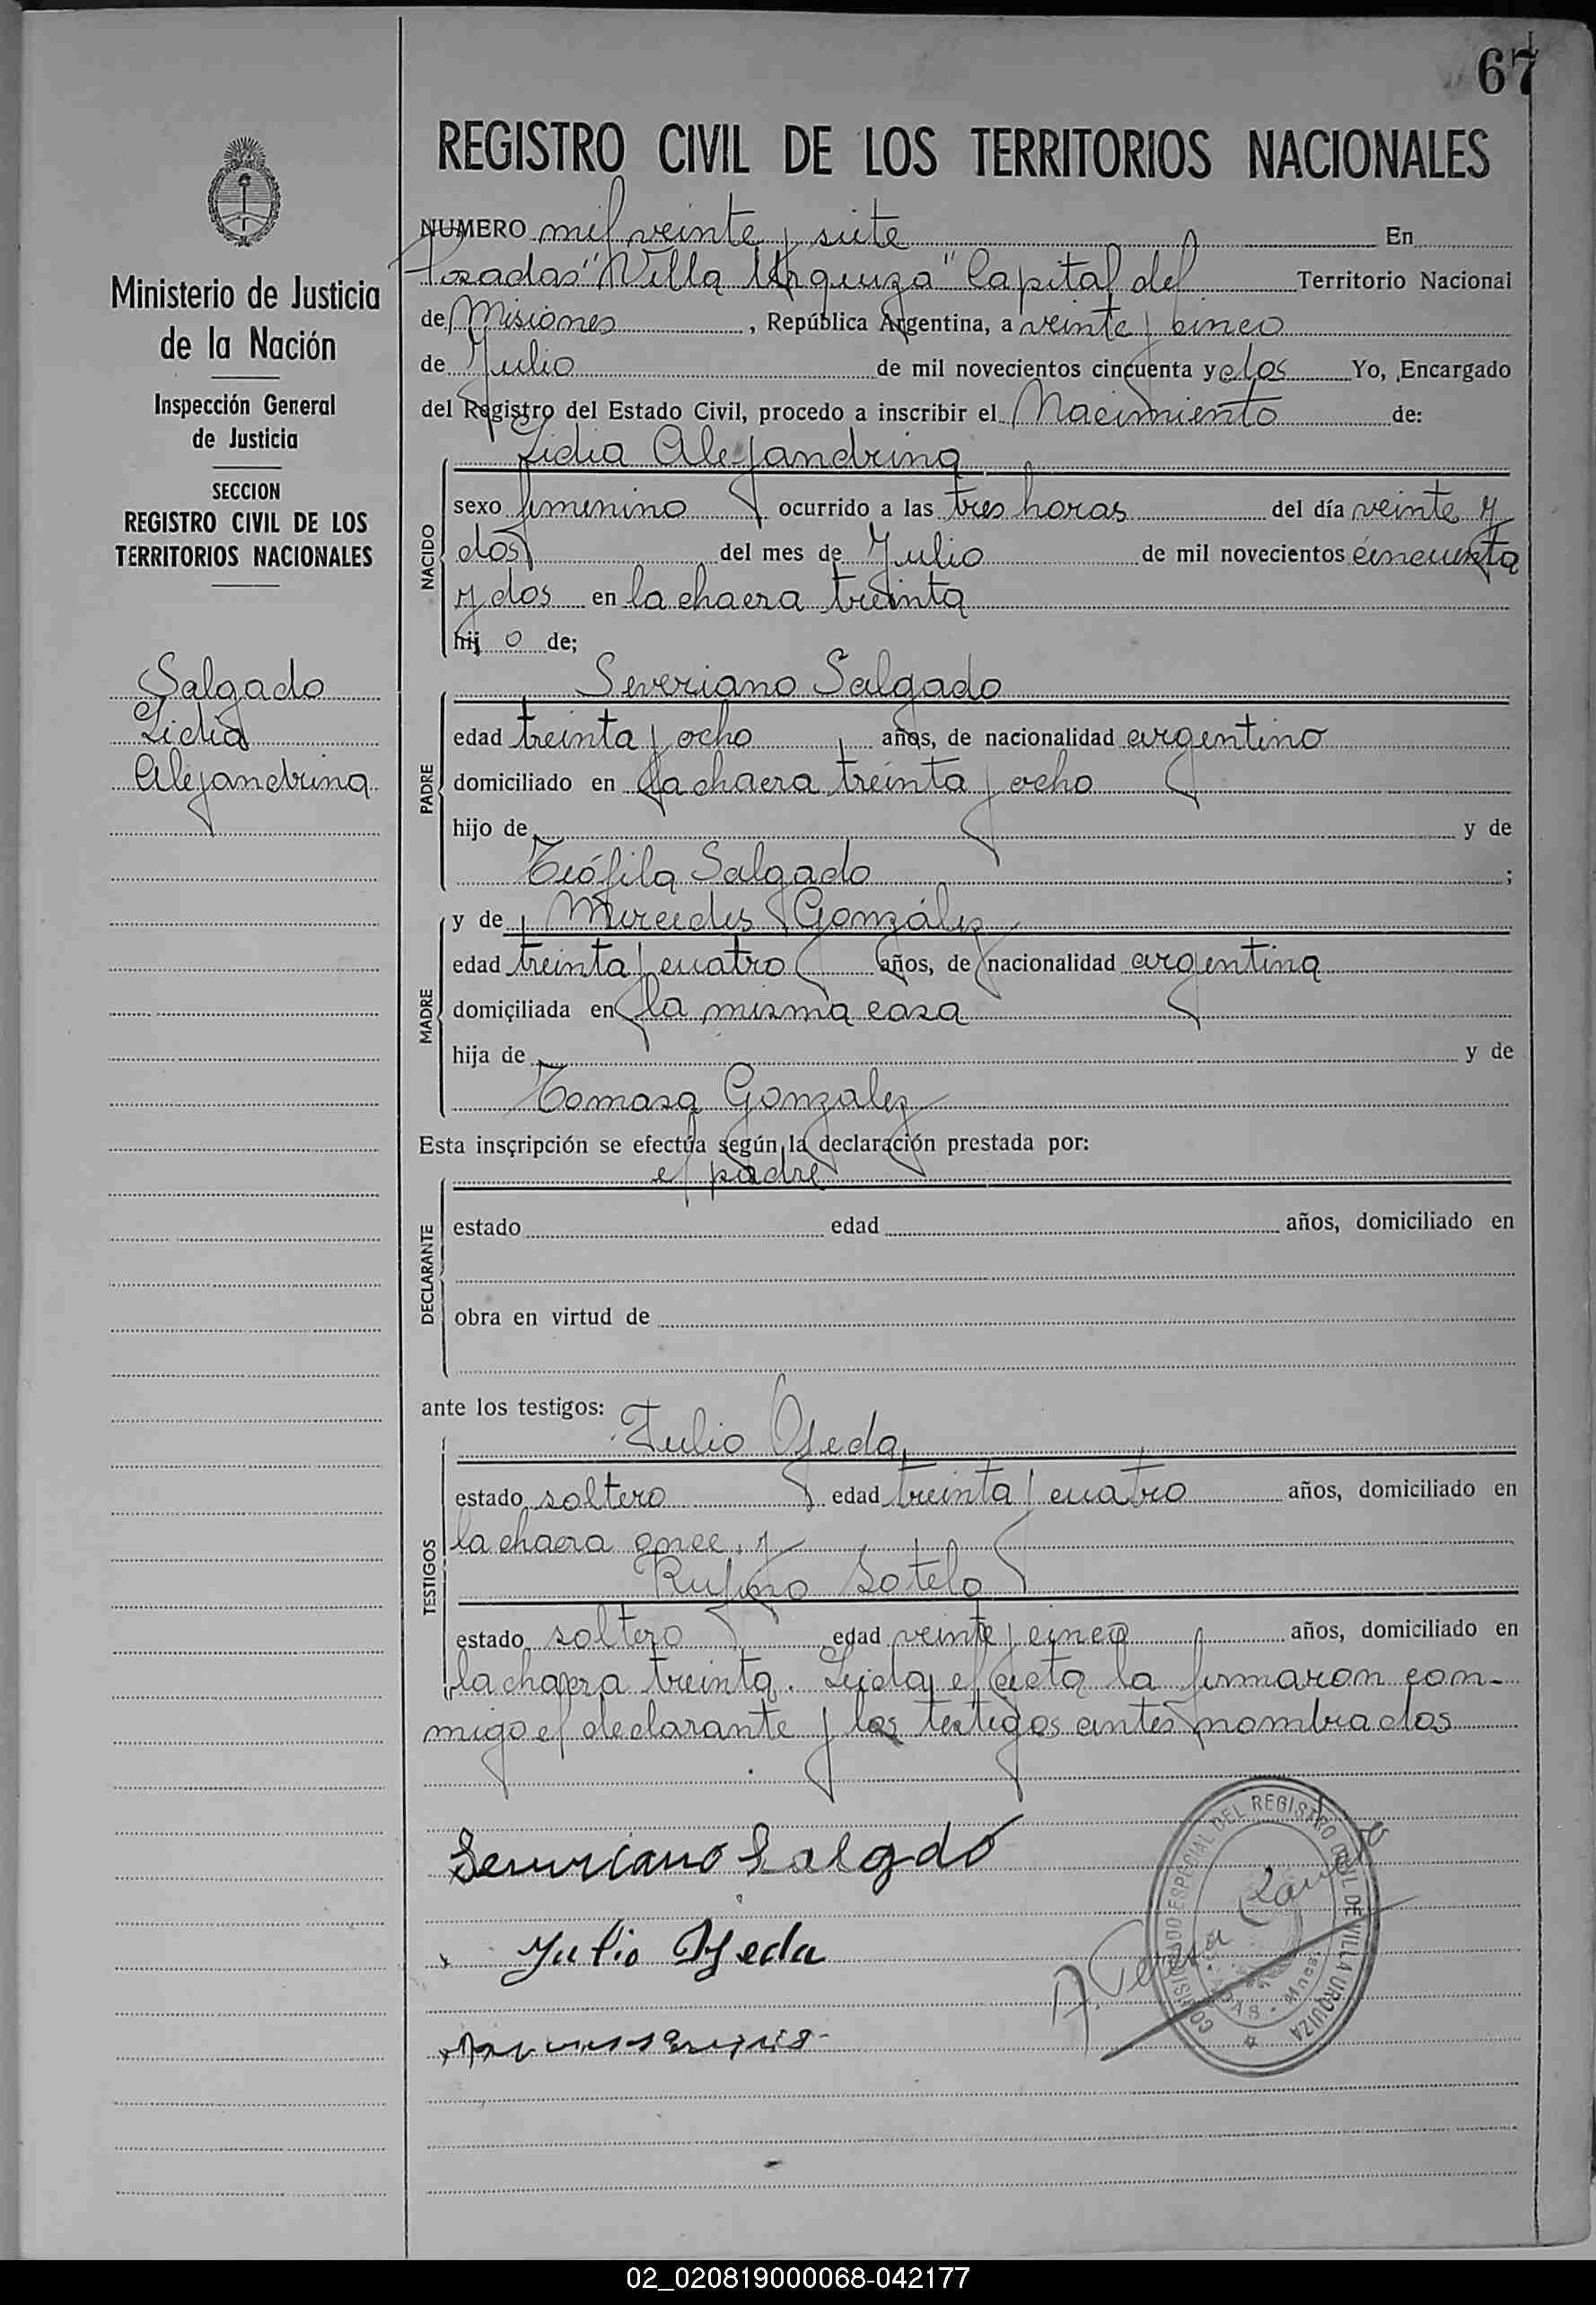 67
REGISTRO CIVIL DE LOS TERRITORIOS NACIONALES
Ministerio de Justicia
de la Nación
Inspección General
de Justicia
SECCION
REGISTRO CIVIL DE LOS
TERRITORIOS NACIONALES
Salgado
Lidia
Alejandrina
NUMERO mil veinte y siete En
Posadas "Villa Urquiza" Capital del Territorio Nacional
de Misiones, República Argentina, a veinte y cinco
de Julio de mil novecientos cincuenta y dos Yo, Encargado
del Registro del Estado Civil, procedo a inscribir el Nacimiento de:
Lidia Alejandrina
NACIDO
sexo femenino ocurrido a las tres horas del día veinte y
dos del mes de Julio de mil novecientos cincuenta
y dos en la chacra treinta
hij o de;
Severiano Salgado
PADRE
edad treinta y ocho años, de nacionalidad argentino
domiciliado en la chacra treinta y ocho
hijo de y de
Teófila Salgado ;
y de Mercedes González
MADRE
edad treinta y cuatro años, de nacionalidad argentina
domiciliada en la misma casa
hija de y de
Tomasa Gonzalez
Esta inscripción se efectúa según la declaración prestada por:
el padre
DECLARANTE
estado edad años, domiciliado en
obra en virtud de
ante los testigos:
Julio Ojeda,
TESTIGOS
estado soltero edad treinta y cuatro años, domiciliado en
la chacra once y
Rufino Sotelo
estado soltero edad veinte y cinco años, domiciliado en
la chacra treinta. Leida el acta la firmaron con-
migo el declarante y los testigos antes nombrados
Severiano Salgdo
Julio Ojeda
COMISIONADO ESPECIAL DEL REGISTRO CIVIL DE VILLA URQUIZA
A. Teresa
02_020819000068-042177